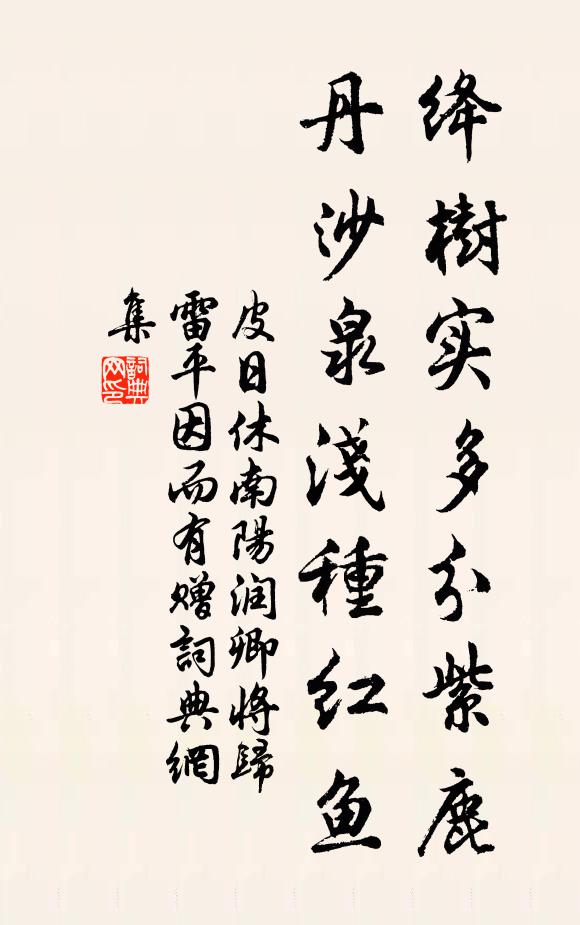 绛樹实多分紫鹿
丹沙泉淺種红鱼
皮日休南陽润卿將歸
雷平因而有赠詞典網
集
詞典
网印